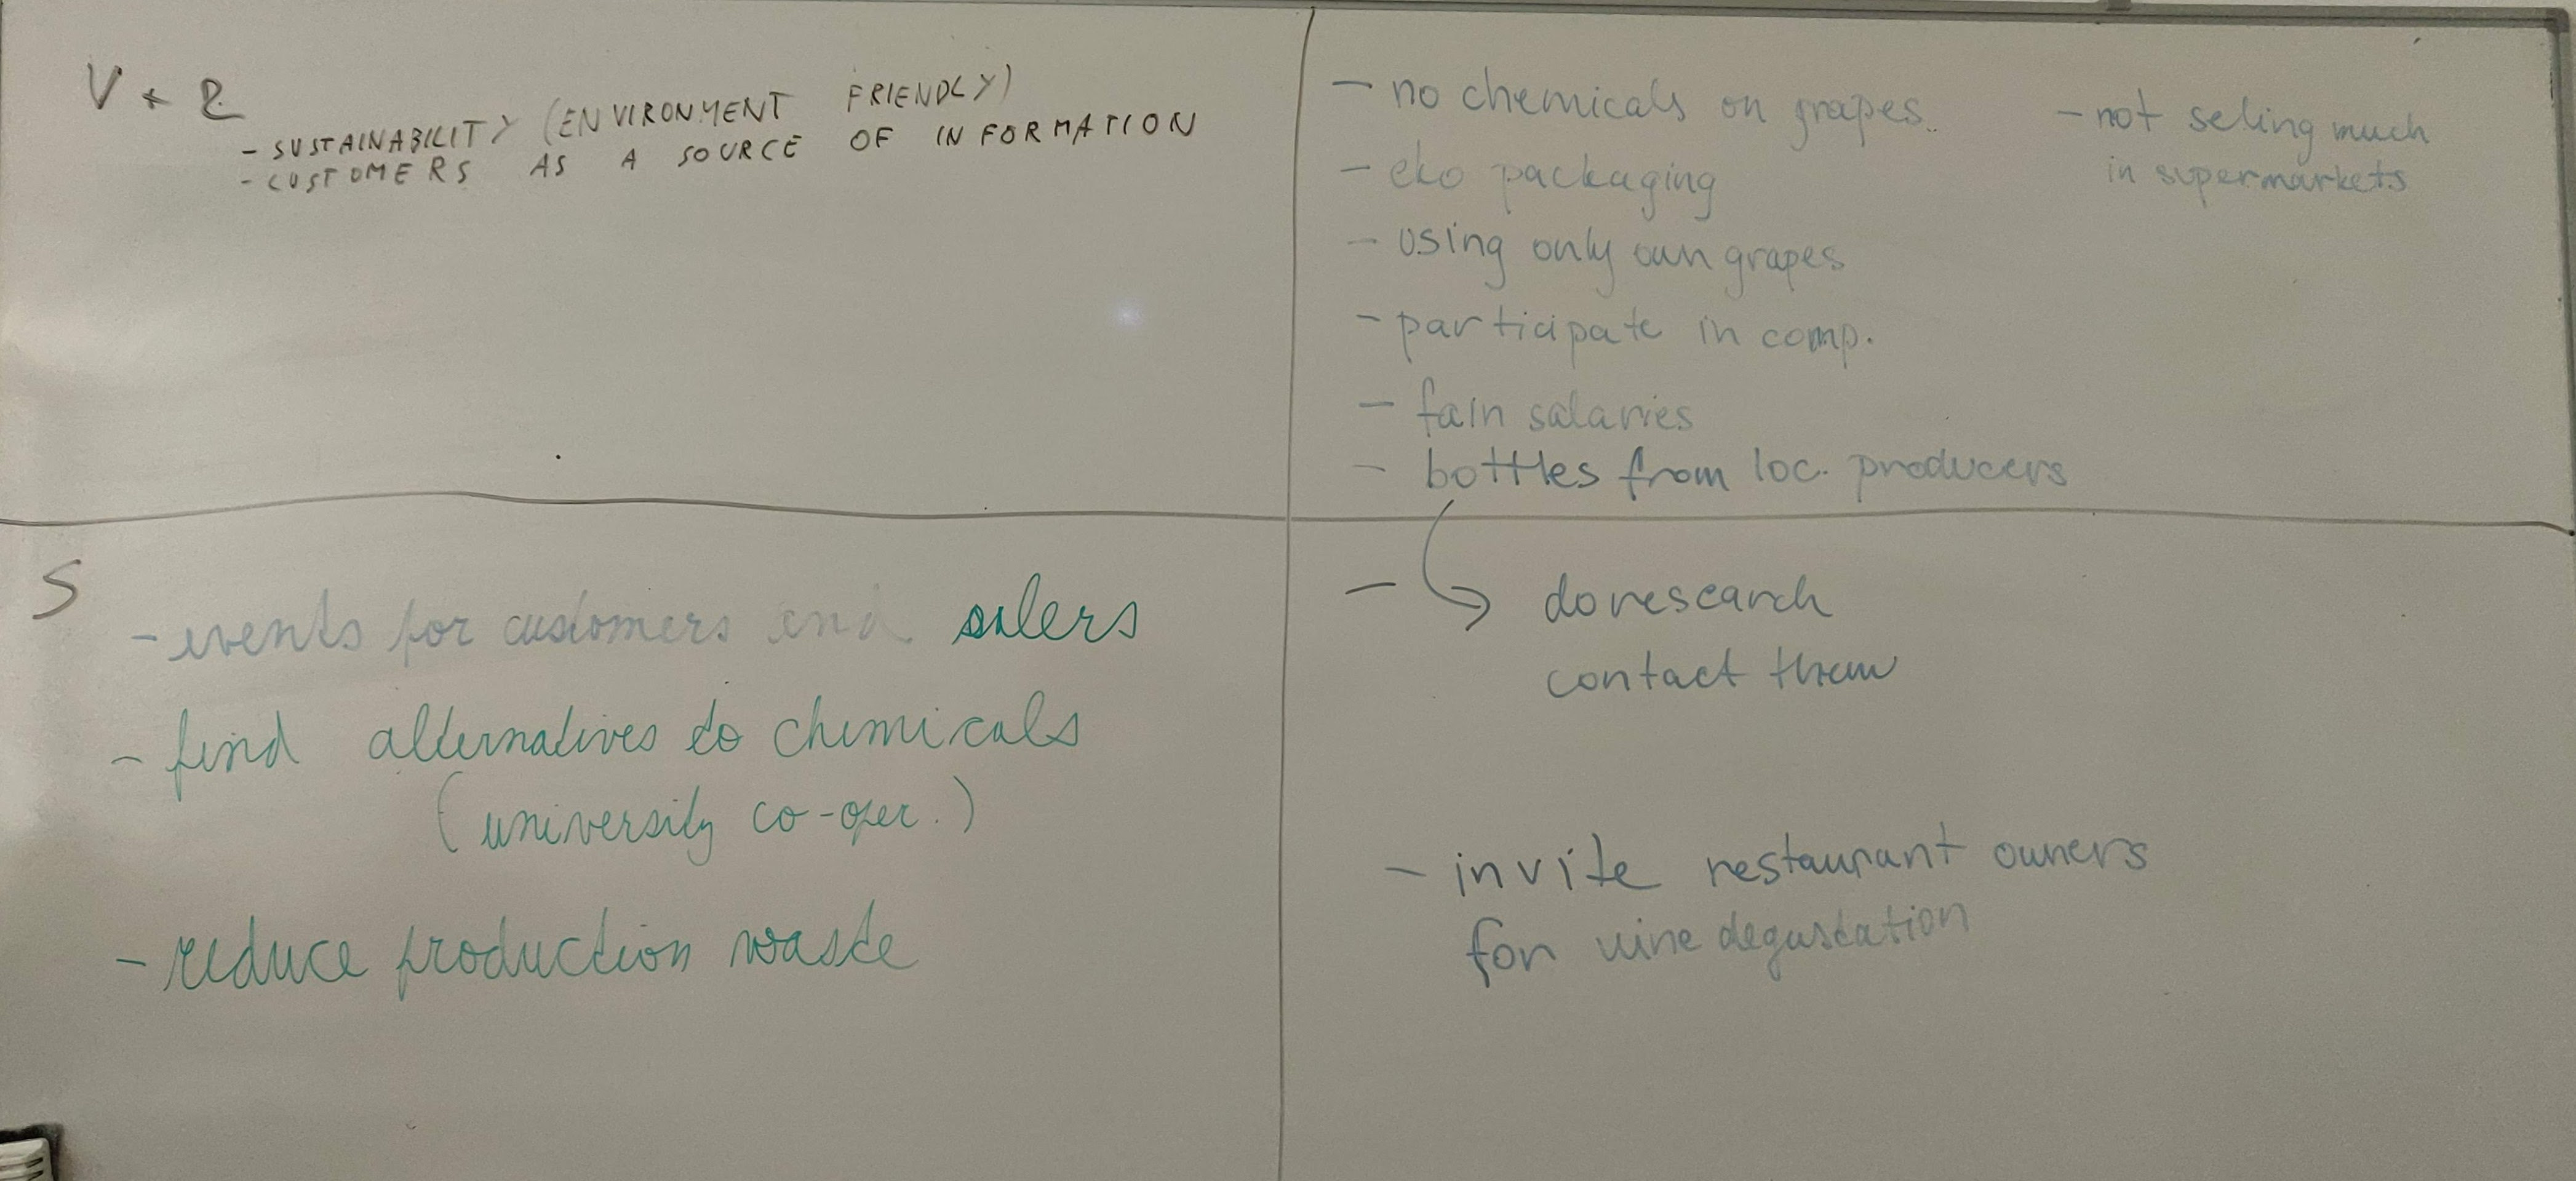 V + R
- SUSTAINABILITY (ENVIRONMENT FRIENDLY)
- CUSTOMERS AS A SOURCE OF INFORMATION
- no chemicals on grapes
- eko packaging
- using only own grapes
- participate in comp.
- fair salaries
- bottles from loc. producers
- not seling much
in supermarkets
S
- events for customers and salers
- find alternatives to chemicals
(university co-oper.)
- reduce production waste
- do research
contact them
- invite restaurant owners
for wine degustation